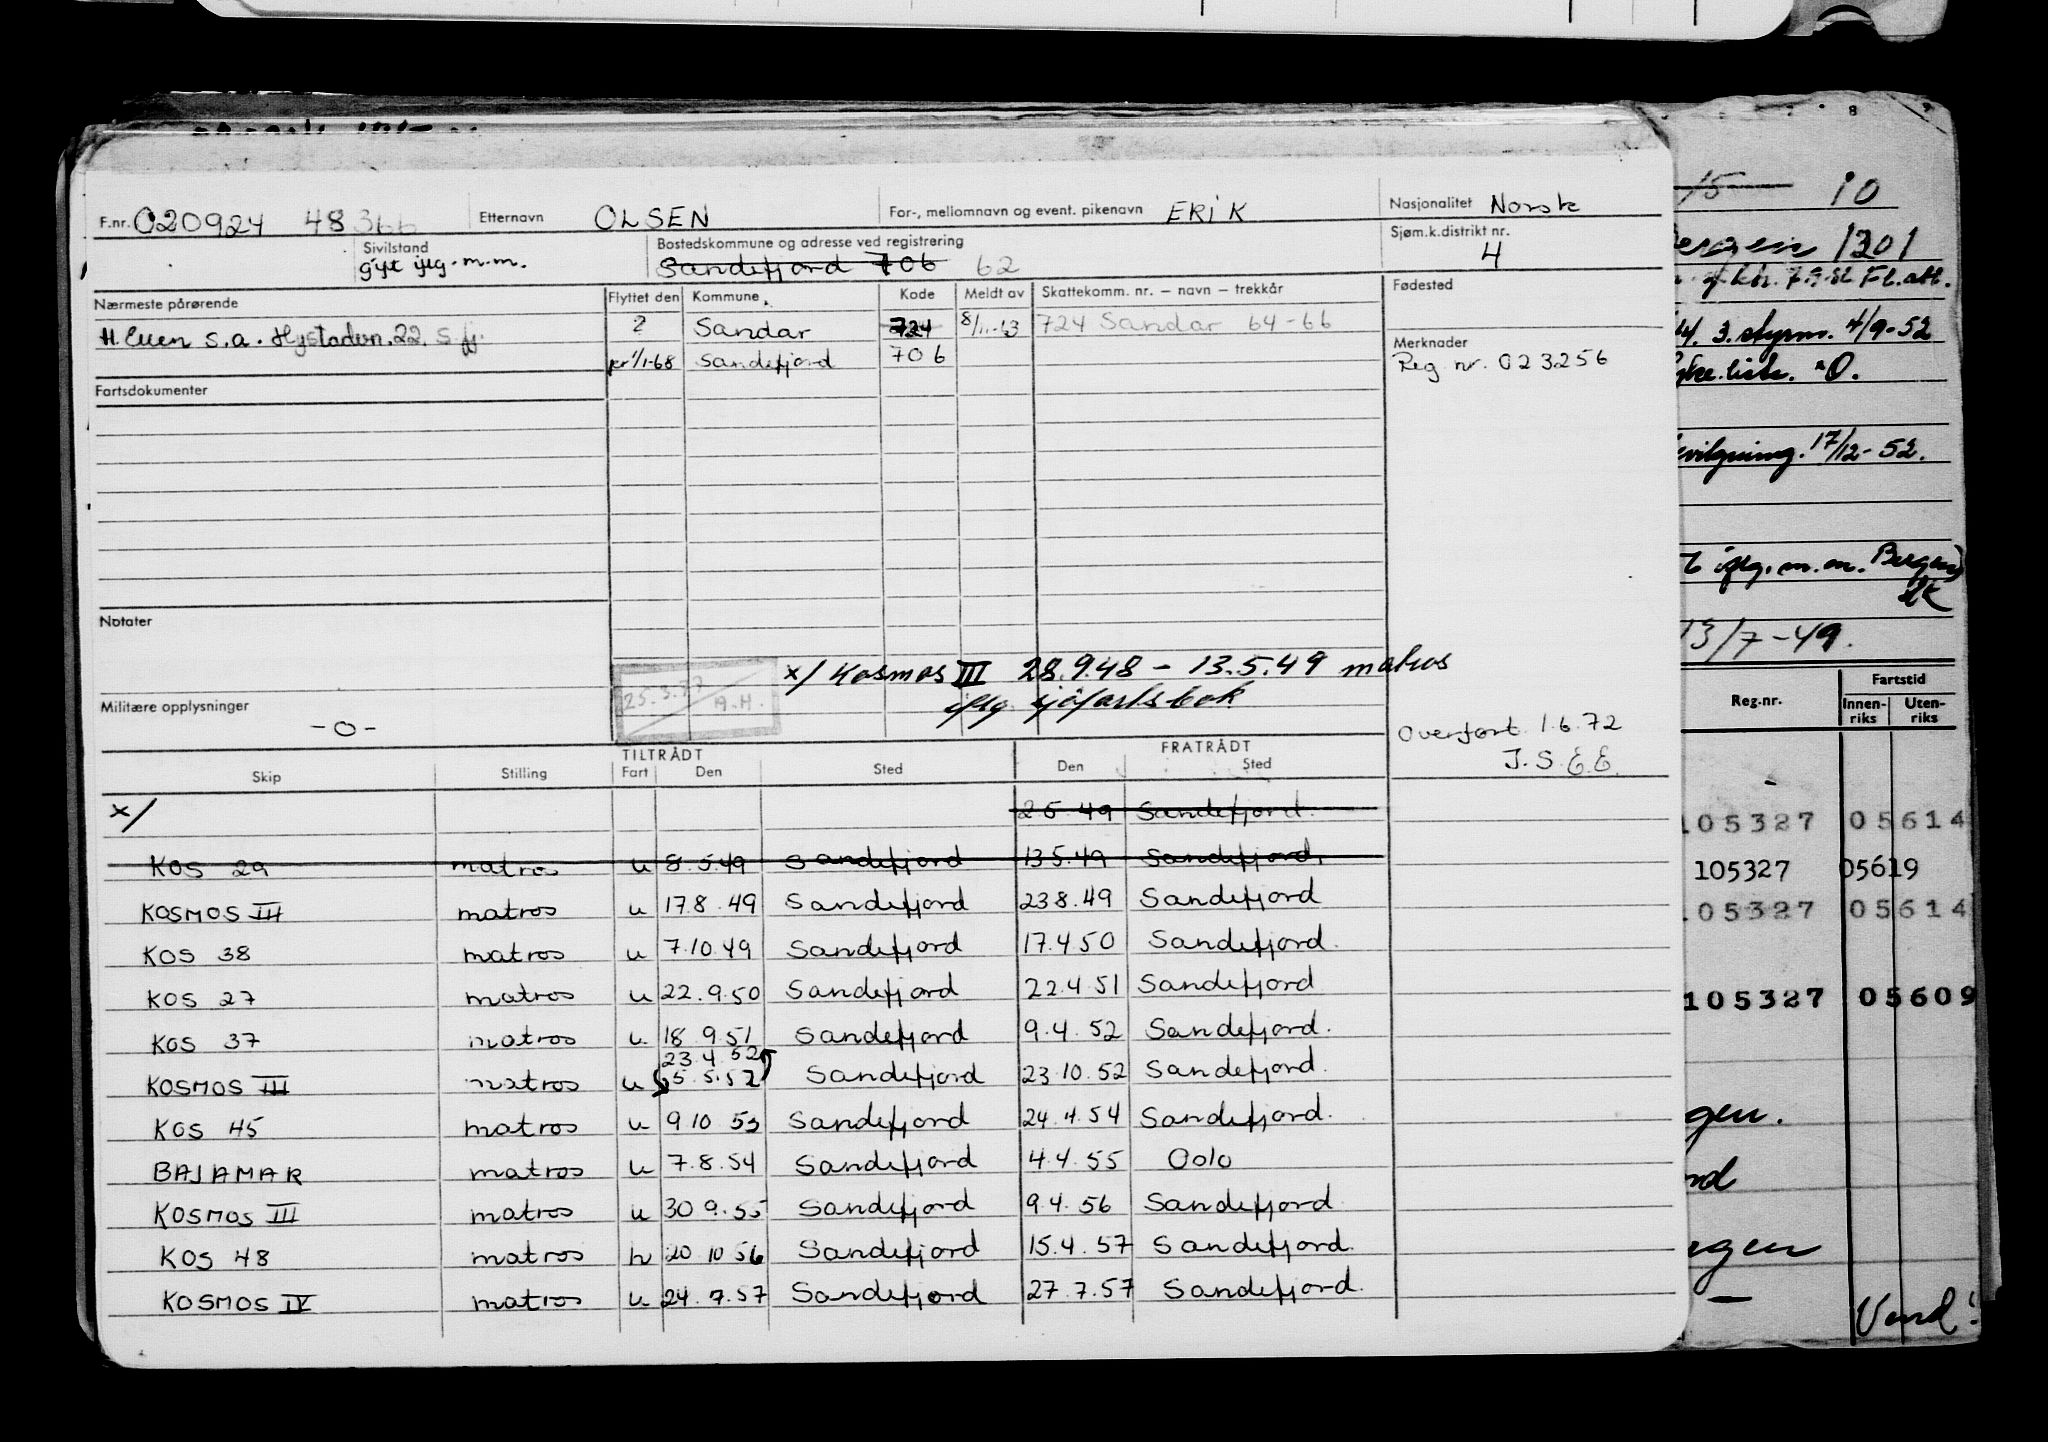 F.nr. 020924 48366 Etternavn OLSEN For-, mellomnavn og event. pikenavn ERIK Nasjonalitet Norsk
Sivilstand gift iflg. m.m. Bostedskommune og adresse ved registrering Sandefjord 706 62 Sjøm.k.distrikt nr. 4
Nærmeste pårørende Flyttet den Kommune Kode Meldt av Skattekomm. nr. – navn – trekkår Fødested
H. Ellen s.a. Hystadvn. 22. S.fj. ? Sandar 724 8/11-63 724 Sandar 64-66
pr 1/1-68 Sandefjord 706
Merknader
Reg. nr. 023256
Fartsdokumenter
Notater
x/ Kosmos III 28.9.48 – 13.5.49 matros
iflg. sjøfartsbok
25.3.77
A.H.
Militære opplysninger -0-
Overført 1.6.72
J.S.E.E.
TILTRÅDT FRATRÅDT
Skip Stilling Fart Den Sted Den Sted
x/ 2 5.49 Sandefjord.
KOS 29 matros u 8.5.49 Sandefjord 13.5.49 Sandefjord.
KOSMOS III matros u 17.8.49 Sandefjord 23.8.49 Sandefjord
KOS 38 matros u 7.10.49 Sandefjord 17.4.50 Sandefjord.
KOS 27 matros u 22.9.50 Sandefjord 22.4.51 Sandefjord
KOS 37 matros u 18.9.51 Sandefjord 9.4.52 Sandefjord.
23.4.52
KOSMOS III matros u 5.5.52 Sandefjord 23.10.52 Sandefjord.
KOS 45 matros u 9.10.53 Sandefjord 24.4.54 Sandefjord.
BAJAMAR matros u 7.8.54 Sandefjord 4.4.55 Oslo
KOSMOS III matros u 30.9.55 Sandefjord 9.4.56 Sandefjord.
KOS 48 matros u 20.10.56 Sandefjord 15.4.57 Sandefjord.
KOSMOS IV matros u 24.7.57 Sandefjord 27.7.57 Sandefjord.
8
15 10
1301
7.9.51 Fl.att.
3. styrm. 4/9-52
17/12-52.
iflg. m.m. Bergen
13/7-49.
Reg.nr. Fartstid
Innen-riks Uten-riks
105327 05614
105327 05619
105327 05614
105327 05609
gen.
rd
rgen
Vend!